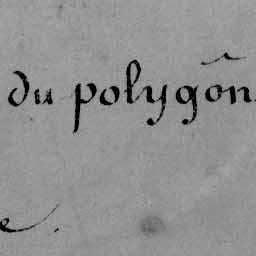 du polygôn
e.